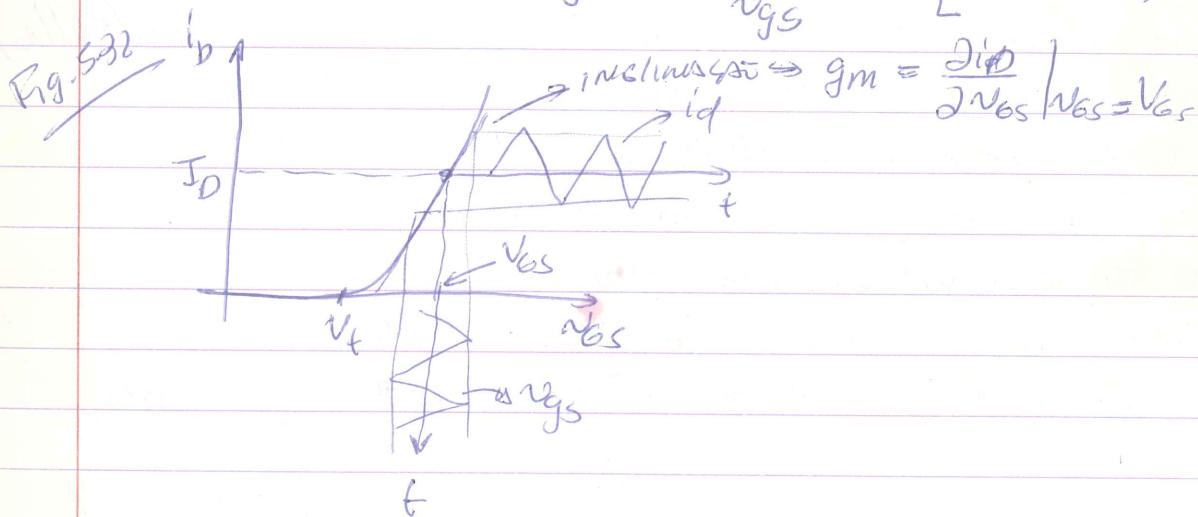 vgs L
Fig. 5-32
iD
INCLINAÇÃO ⇒ gm = ∂iD / ∂vGS | vGS = VGS
id
ID
t
VGS
Vt
vGS
vgs
t